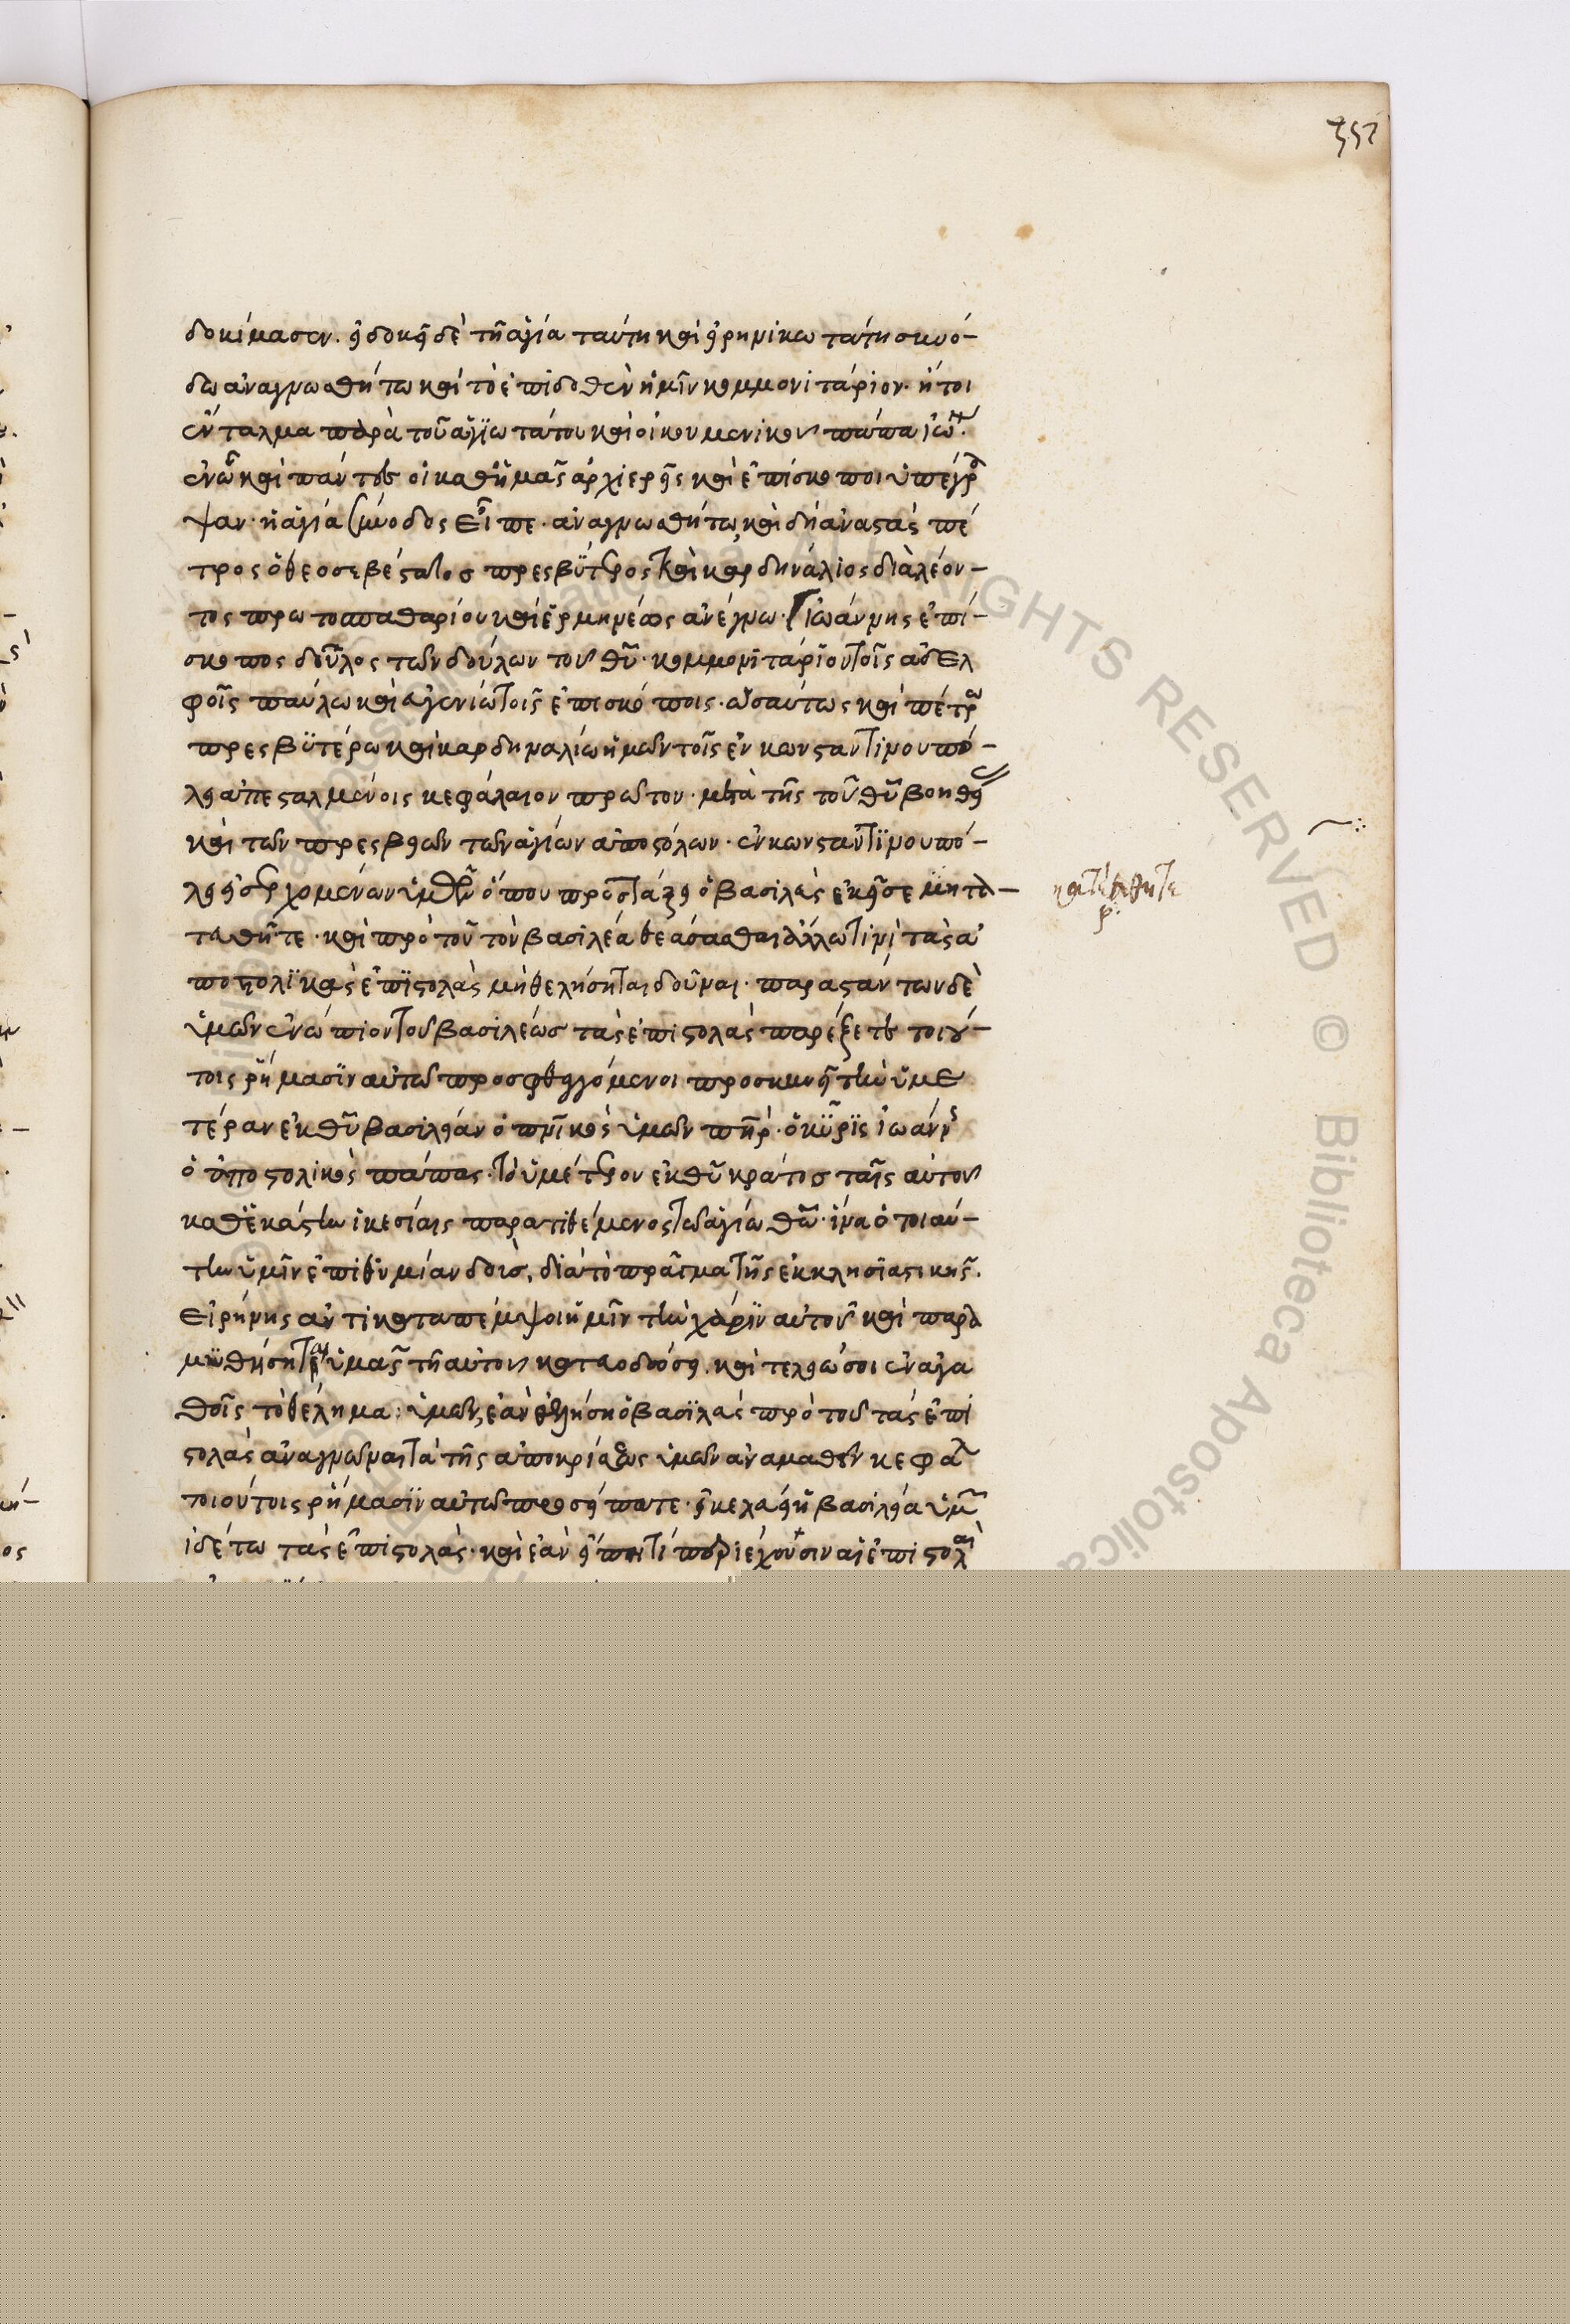 352
δοκίμασεν. εἰ δοκεῖ δὲ τῆ ἁγία ταύτη καὶ εἰρηνικωτάτη συνό-
δω ἀναγνωσθήτω καὶ τὸ ἐπιδοθὲν ἡμῖν κομμονιτάριον· ἤτοι
ἔνταλμα παρὰ τοῦ ἁγιωτάτου καὶ οἰκουμενικοῦ πάπα ἰω.
ἐν ᾧ καὶ πάντες οἱ καθ' ἡμᾶς ἀρχιερεῖς καὶ ἐπίσκοποι ὑπέγρα
ψαν· ἡ ἁγία σύνοδος εἶπε· ἀναγνωσθήτω, καὶ δὴ ἀναστὰς πέ
τρος ὁ θεοσεβέστατος πρεσβύτερος καὶ καρδηνάλιος διὰ λέον-
τος πρωτοσπαθαρίου καὶ ἑρμηνέως ἀνέγνω· Ἰωάννης ἐπί-
σκοπος δοῦλος τῶν δούλων τοῦ θυ· κομμονιτάριον τοῖς ἀδελ
φοῖς παύλω καὶ εὐγενίω τοῖς ἐπισκόποις· ὡσαύτως καὶ πέτρω
πρεσβυτέρω καὶ καρδηναλίω ἡμῶν τοῖς ἐν κωνσταντινουπό-
λει ἀπεσταλμένοις κεφάλαιον πρῶτον· μετὰ τῆς τοῦ θυ βοηθεί
καὶ τῶν πρεσβειῶν τῶν ἁγίων ἀποστόλων· ἐν κωνσταντινουπό-
λει εἰσερχομένων ὑμῶν ὅπου προστάξει ὁ βασιλεὺς ἐκεῖσε μητα-
ταθῆτε· καὶ πρὸ τοῦ τὸν βασιλέα θεάσασθαι ἄλλω τινὶ τὰς ἀ
ποστολικὰς ἐπιστολὰς μὴ θελήσηται δοῦναι· παραστάντων δὲ
ὑμῶν ἐνώπιον τοῦ βασιλέως τὰς ἐπιστολὰς παρέξετε τοιού-
τοις ῥήμασιν αὐτῶ προσφθεγγόμενοι προσκυνεῖ τὴν ὑμε
τέραν ἐκ θυ βασιλείαν ὁ πνικὸς ὑμῶν πηρ· ὁ κύρις ἰωάννης
ὁ ἀποστολικὸς πάπας· τὸ ὑμέτερον ἐκ θυ κράτος ταῖς αὐτοῦ
καθεκάστην ἱκεσίαις παρατιθέμενος τῶ ἁγίω θω· ἵνα ὁ τοιαύ-
την ὑμῖν ἐπιθυμίαν δοὺς, διὰ τὸ πράγμα τῆς ἐκκλησιαστικῆς.
εἰρήνης ἀντικαταπέμψοι ὑμῖν τὴν χάριν αὐτοῦ καὶ παρα
μυθήσηται ὑμᾶς τῆ αὐτοῦ κατευοδώσει. καὶ τελειώσοι ἐν ἀγα
θοῖς τὸ θέλημα ὑμῶν, ἐὰν ἐθελήση ὁ βασιλεὺς πρὸ τοῦ τὰς ἐπι
στολὰς ἀναγνῶναι τὰ τῆς ἀποκρίσεως ὑμῶν ἀναμαθεῖν κεφα
τοιούτοις ῥήμασιν αὐτῶ προσείπατε· εἰ κελεύει ἡ βασιλεία ὑμ
ἰδέτω τὰς ἐπιστολάς· καὶ ἐὰν εἴποι τί περιέχουσιν αἱ ἐπιστολαὶ